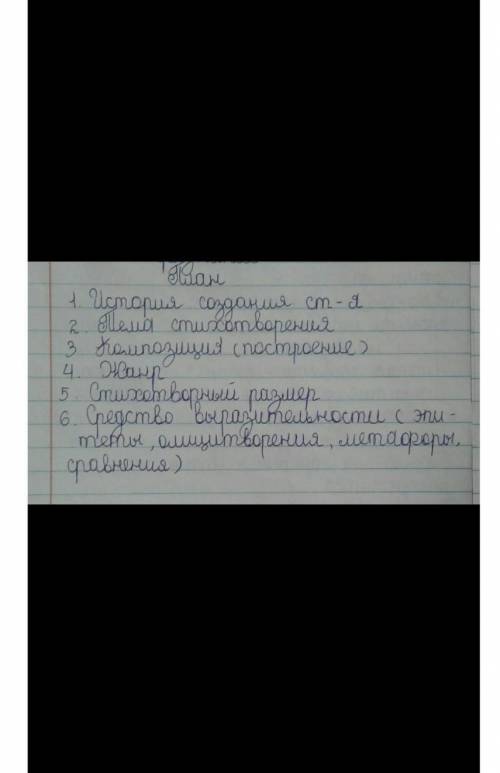 План
1. История создания ст-я
2. Тема стихотворения
3 Композиция (построение)
4. Жанр
5. Стихотворный размер
6. Средство выразительности (эпи-
теты, олицитворения, метафоры,
сравнения)